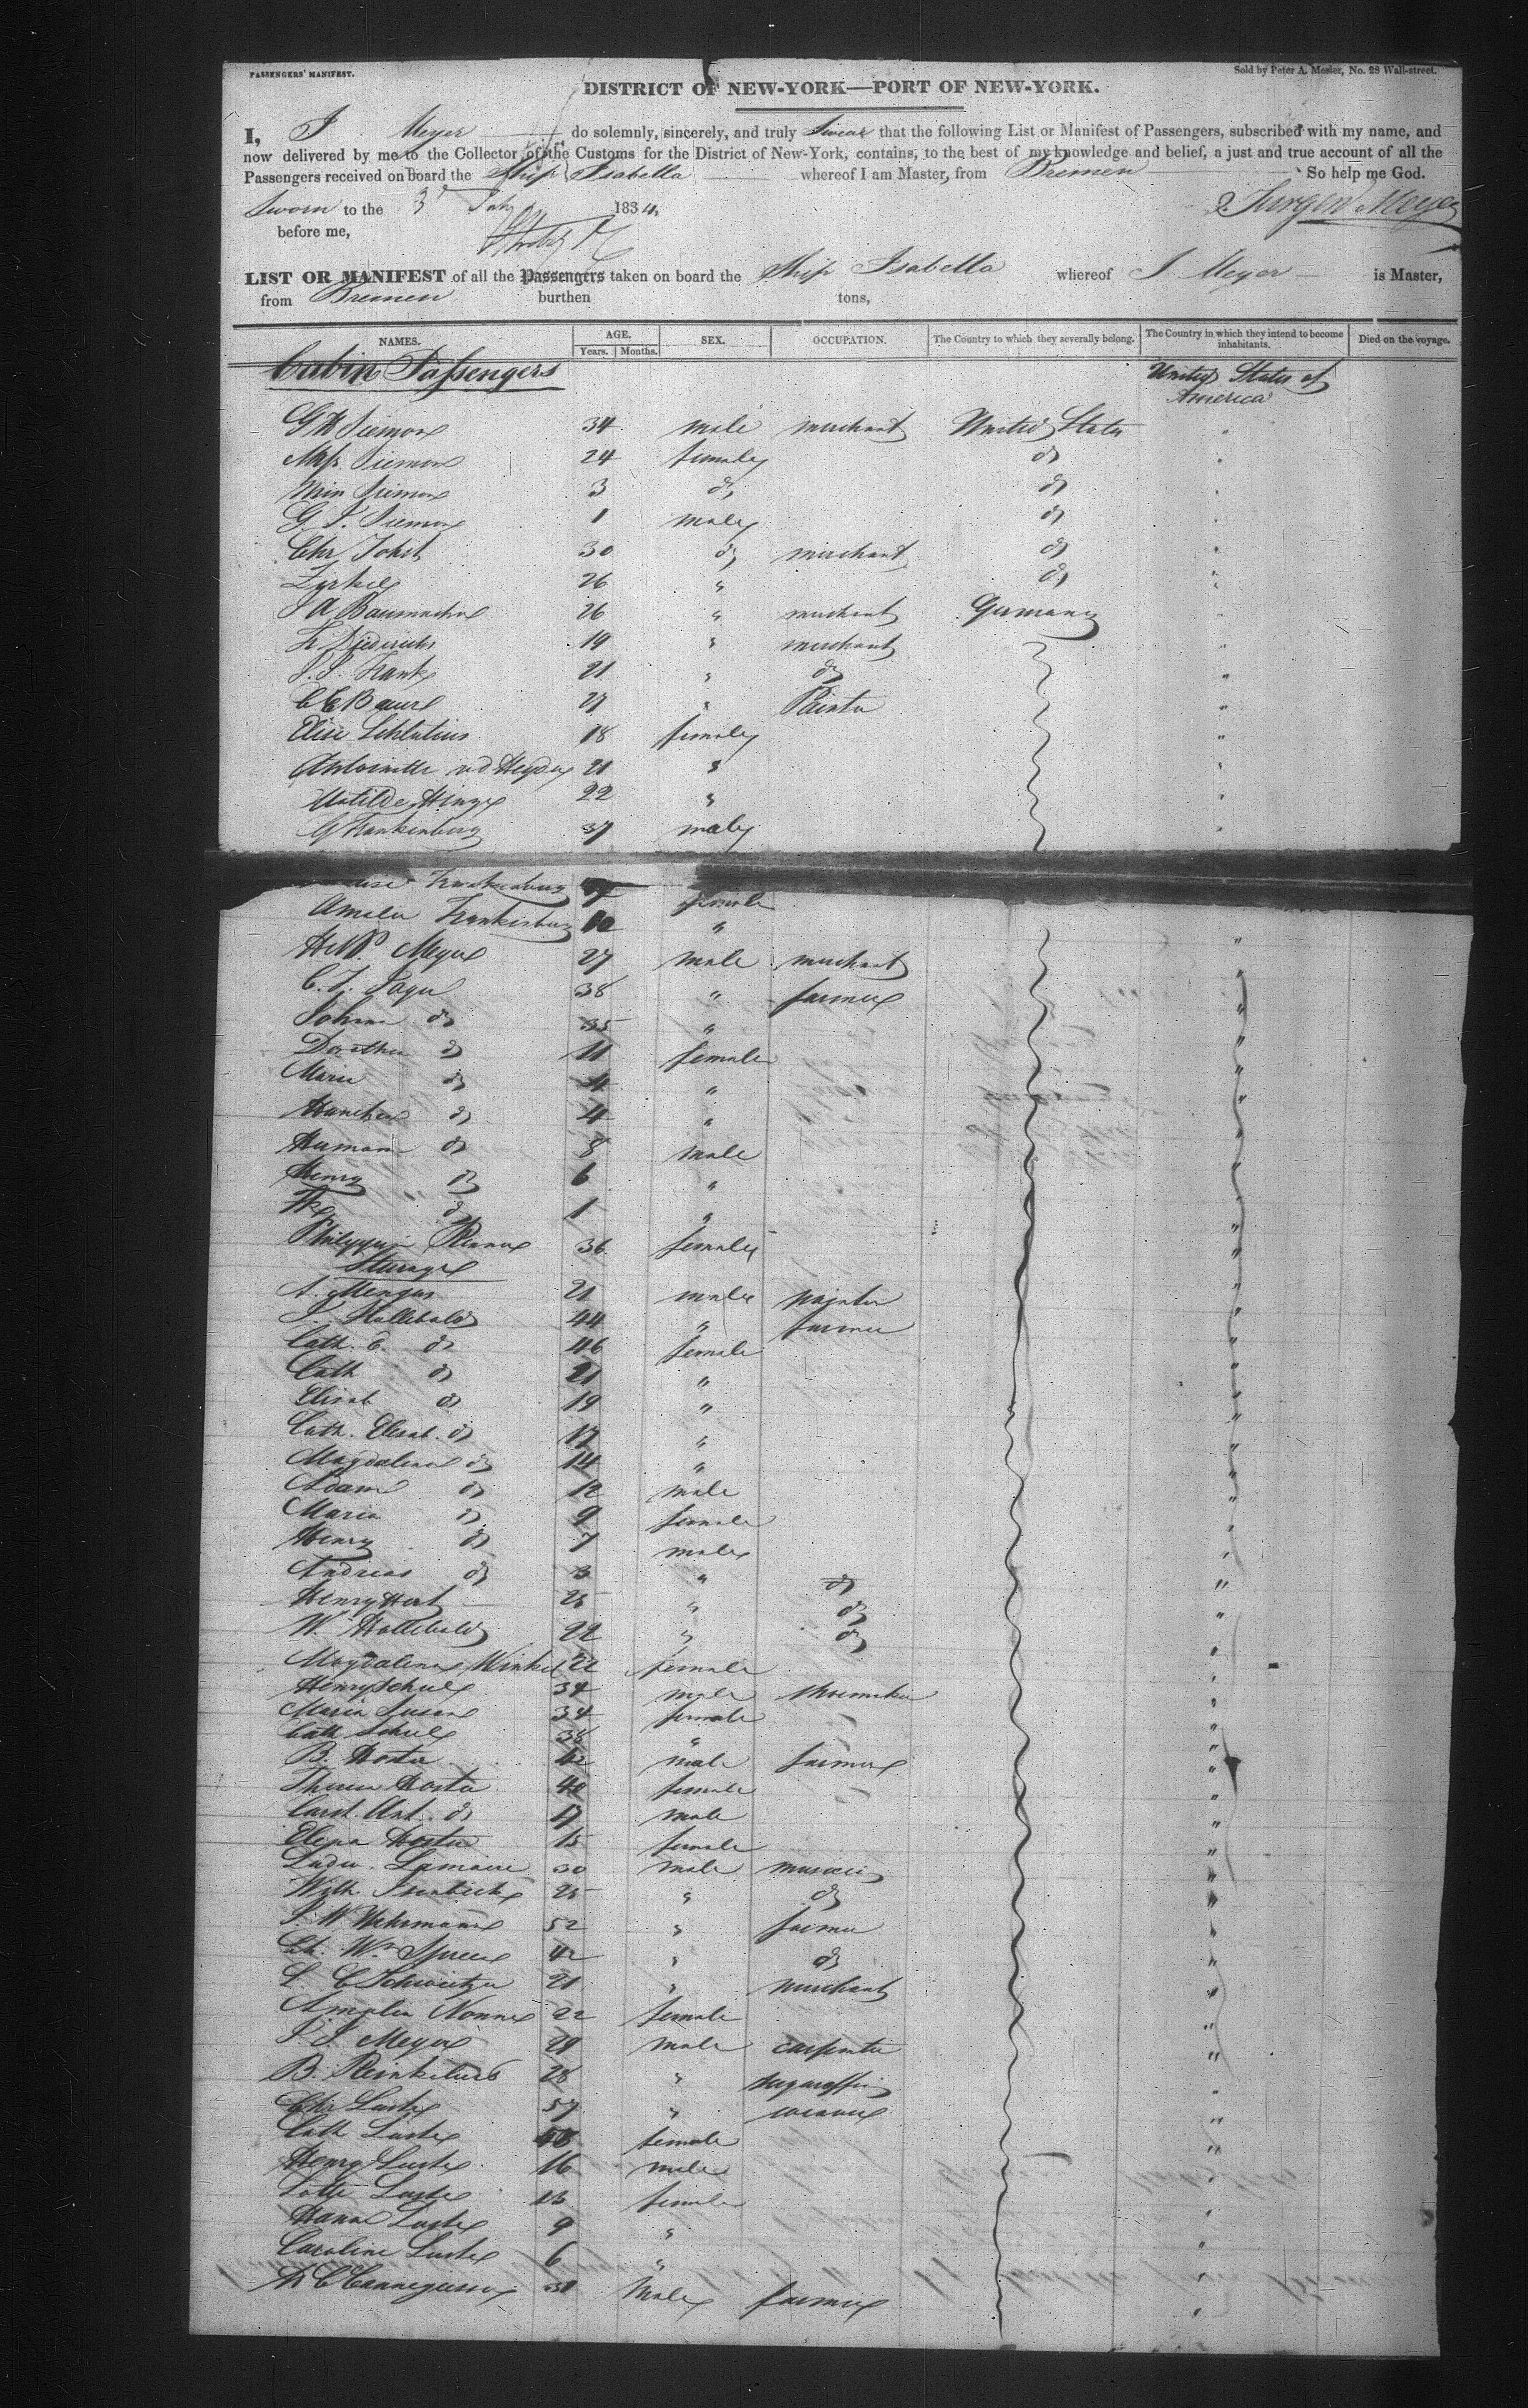 PASSENGERS' MANIFEST.
Sold by Peter A. Mesier, No. 28 Wall-street.
DISTRICT OF NEW-YORK—PORT OF NEW-YORK.
I, J Meyer do solemnly, sincerely, and truly Swear that the following List or Manifest of Passengers, subscribed with my name, and
now delivered by me to the Collector of the Customs for the District of New-York, contains, to the best of my knowledge and belief, a just and true account of all the
Passengers received on board the Ship Isabella whereof I am Master, from Bremen So help me God.
Sworn to the 3d July 1834 Jurgen Meyer
before me,
LIST OR MANIFEST of all the Passengers taken on board the Ship Isabella whereof J Meyer is Master,
from Bremen burthen tons,
NAMES. AGE. Years. Months. SEX. OCCUPATION. The Country to which they severally belong. The Country in which they intend to become inhabitants. Died on the voyage.
Cabin Passengers United States of America
G H Siemon 34 male merchant United States "
Mrs. Siemon 24 female do "
Min Siemon 3 do do "
G. J. Siemon 1 male do "
Chr Jokst 30 do merchant do "
26 " do "
J A 26 " merchant Germany "
L Diederichs 19 " merchant "
J. J. Frank 21 " do "
C E Bauer 27 " Painter "
Elise Schlutius 18 female "
Antoinette v d Heyde 21 " "
Matilde Hinze 22 " "
G Frankenberg 37 male "
Frankenberg female
Amalia Frankenberg 10 " "
H W. Meyer 27 male merchant "
C. F. 38 " farmer "
Johan do 35 " "
Dorothea do 11 female "
Marie do 4 " "
Hanchen do 4 " "
Herman do 8 male "
Henry do 6 " "
do 1 " "
36 female "
Steerage
A. Menger 21 male painter "
J. Hollebald 44 " farmer "
Cath. E. do 46 female "
Cath do 21 " "
Elisab do 19 " "
Cath. Elisab. do 17 " "
Magdalena do 14 " "
Adam do 12 male "
Maria do 9 female "
Henry do 7 male "
Andreas do 3 " do "
Henry Hert 25 " do "
W. Hollebald 22 " do "
Magdalena Winkel 22 female "
Henry Schul 34 male shoemaker "
Maria Susan 34 female "
Cath Schul 38 " "
B. Hoster 42 male farmer "
Theresa Hoster 40 female "
Carst. Ant. do 17 male "
Elena Hoster 15 female "
Ludw. Lamaire 30 male "
Wilh 25 " do "
J. W Wehrmann 52 " farmer "
Ch. Wm Spree 42 " do "
L. C Schweitzer 21 " merchant "
Amalia Nonne 22 female "
J. J. Meyer 29 male carpenter "
B. Reinkelues 28 " "
Chr Luster 57 " weaver "
Cath Luster 48 female "
Henry Luster 16 male "
Lotte Luster 13 female "
Hana Luster 9 " "
Caroline Luster 6 " "
H C 30 Male farmer "